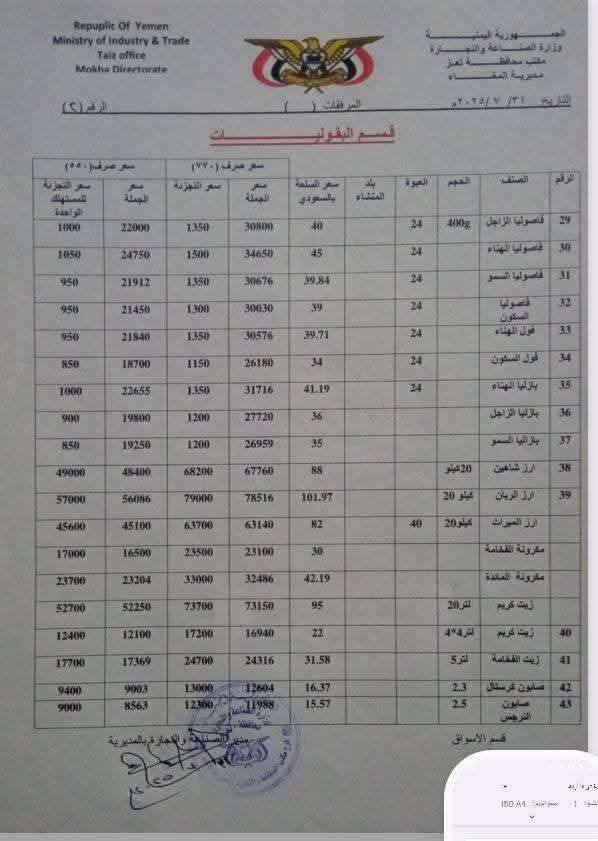 Republic Of Yemen
Ministry of Industry & Trade
Taiz office
Mokha Directorate
الجمــــهورية اليمنية
وزارة الصناعة والتجارة
مكتب محافظة تعز
مديرية المخاء
التاريخ ٣١/ ٧ /٢٠٢٥م المرفقات ( ) الرقم (٢)
قسم البقوليــــــات
سعر صرف (٧٧٠) سعر صرف (٥٥٠)
الرقم الصنف الحجم العبوة بلد المنشاء سعر السلعة بالسعودي سعر الجملة سعر التجزئة سعر الجملة سعر التجزئة للمستهلك الواحدة
29 فاصوليا الزاجل 400g 24 40 30800 1350 22000 1000
30 فاصوليا الهناء 24 45 34650 1500 24750 1050
31 فاصوليا السمو 24 39.84 30676 1350 21912 950
32 فاصوليا السكون 24 39 30030 1300 21450 950
33 فول الهناء 24 39.71 30576 1350 21840 950
34 فول السكون 24 34 26180 1150 18700 850
35 بازليا الهناء 24 41.19 31716 1350 22655 1000
36 بازليا الزاجل 36 27720 1200 19800 900
37 بازاليا السمو 35 26959 1200 19250 850
38 ارز شاهين 20كيلو 88 67760 68200 48400 49000
39 ارز الربان كيلو 20 101.97 78516 79000 56086 57000
ارز الميراث كيلو20 40 82 63140 63700 45100 45600
مكرونة الفخامة 30 23100 23500 16500 17000
مكرونة المائدة 42.19 32486 33000 23204 23700
زيت كريم لتر20 95 73150 73700 52250 52700
40 زيت كريم لتر4*4 22 16940 17200 12100 12400
41 زيت الفخامة لتر5 31.58 24316 24700 17369 17700
42 صابون كرستال 2.3 16.37 12604 13000 9003 9400
43 صابون النرجس 2.5 15.57 11988 12300 8563 9000
قسم الاسواق
مدير الصناعة والتجارة بالمديرية
ISO A4
1